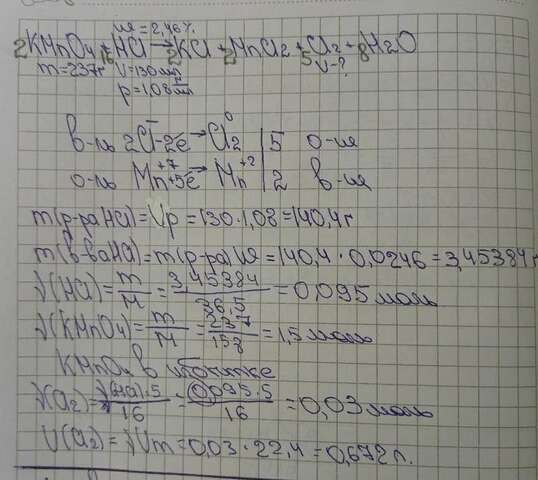 ω = 2,46%
2KMnO4 + 16HCl → 2KCl + 2MnCl2 + 5Cl2 + 8H2O
m = 237г V = 130мл V - ?
ρ = 1,08 г/мл
в-ль 2Cl⁻ - 2е → Cl2⁰ | 5 о-ие
о-ль Mn⁺⁷ + 5е → Mn⁺² | 2 в-ие
m(р-ра HCl) = Vρ = 130 · 1,08 = 140,4г
m(в-ва HCl) = m(р-ра) ω = 140,4 · 0,0246 = 3,45384г
ν(HCl) = m/M = 3,45384/36,5 = 0,095 моль
ν(KMnO4) = m/M = 237/158 = 1,5 моль
KMnO4 в избытке
ν(Cl2) = ν(HCl)·5/16 = 0,095·5/16 = 0,03 моль
V(Cl2) = νVm = 0,03 · 22,4 = 0,672 л.